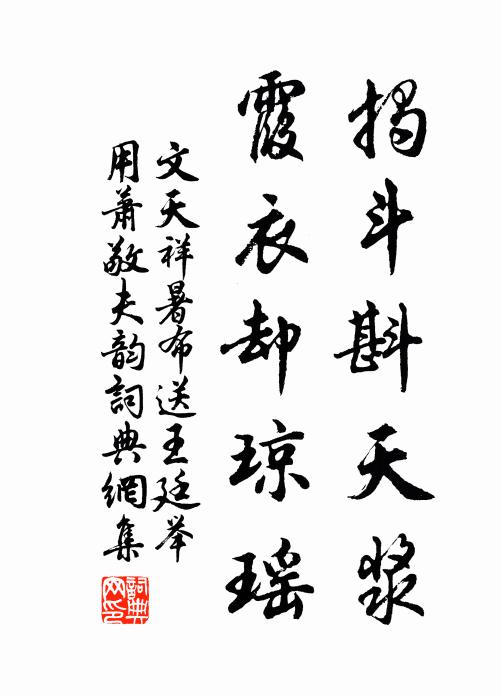 揭斗斟天漿
霞衣却琼瑶
文天祥暑布送王廷举
用蕭敬夫韵詞典網集
詞典网印